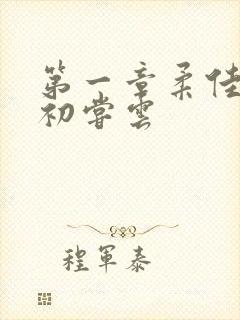 第一章柔佳
初尝雲
程军泰